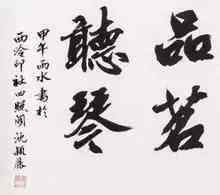 品茗
聽琴
甲午雨水書於
西泠印社四照閣沈